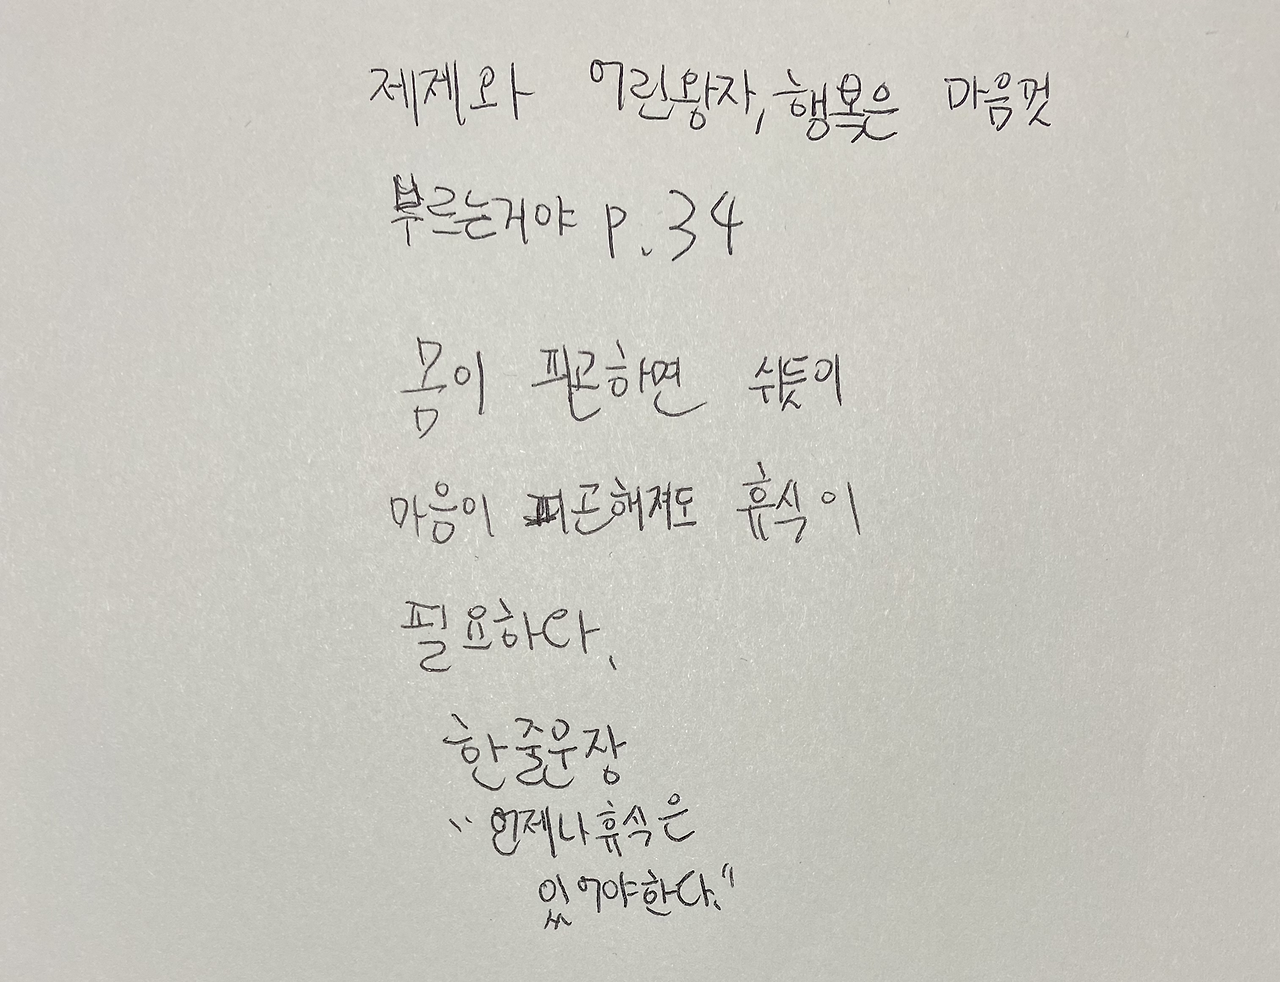 제제와 어린왕자, 행복은 마음껏
부르는거야 p.34
몸이 피곤하면 쉬듯이
마음이 피곤해져도 휴식이
필요하다.
한줄문장
"언제나휴식은
있어야한다."